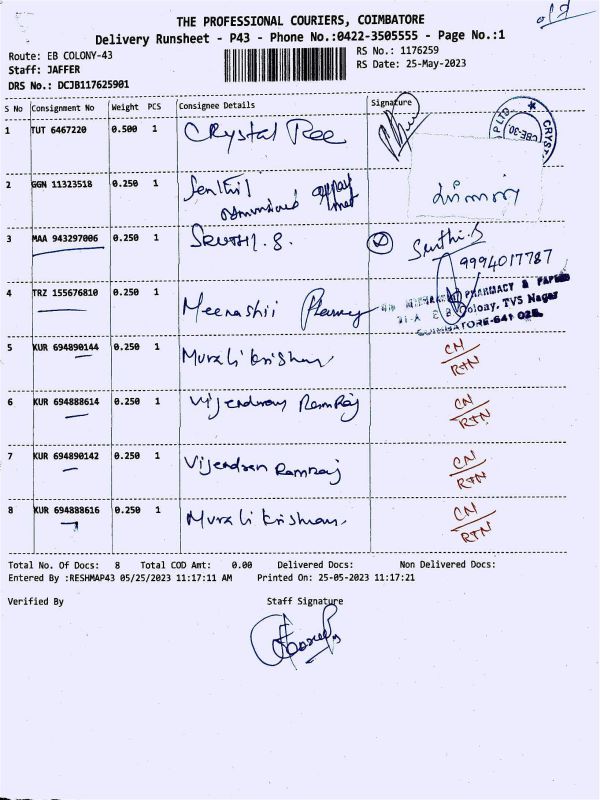 THE PROFESSIONAL COURIERS, COIMBATORE
Delivery Runsheet - P43 - Phone No.:0422-3505555 - Page No.:1
Route: EB COLONY-43
RS No.: 1176259
Staff: JAFFER
RS Date: 25-May-2023
DRS No.: DCJB117625901
S No Consignment No Weight PCS Consignee Details Signature
1 TUT 6467220 0.500 1 Crystal
2 GGN 11323518 0.250 1 Senthil
3 MAA 943297006 0.250 1 SRUTHI.S. Sruthi.S
9994017787
4 TRZ 155676810 0.250 1 Meenashii
PHARMACY &
Colony, TVS Nagar
COIMBATORE-641 025.
5 KUR 694890144 0.250 1 Murali krishnan CN
RTN
6 KUR 694888614 0.250 1 Vijendran RamRaj CN
RTN
7 KUR 694890142 0.250 1 Vijendren Ramraj CN
RTN
8 KUR 694888616 0.250 1 Murali krishnan CN
RTN
Total No. Of Docs: 8 Total COD Amt: 0.00 Delivered Docs: Non Delivered Docs:
Entered By :RESHMAP43 05/25/2023 11:17:11 AM Printed On: 25-05-2023 11:17:21
Verified By Staff Signature